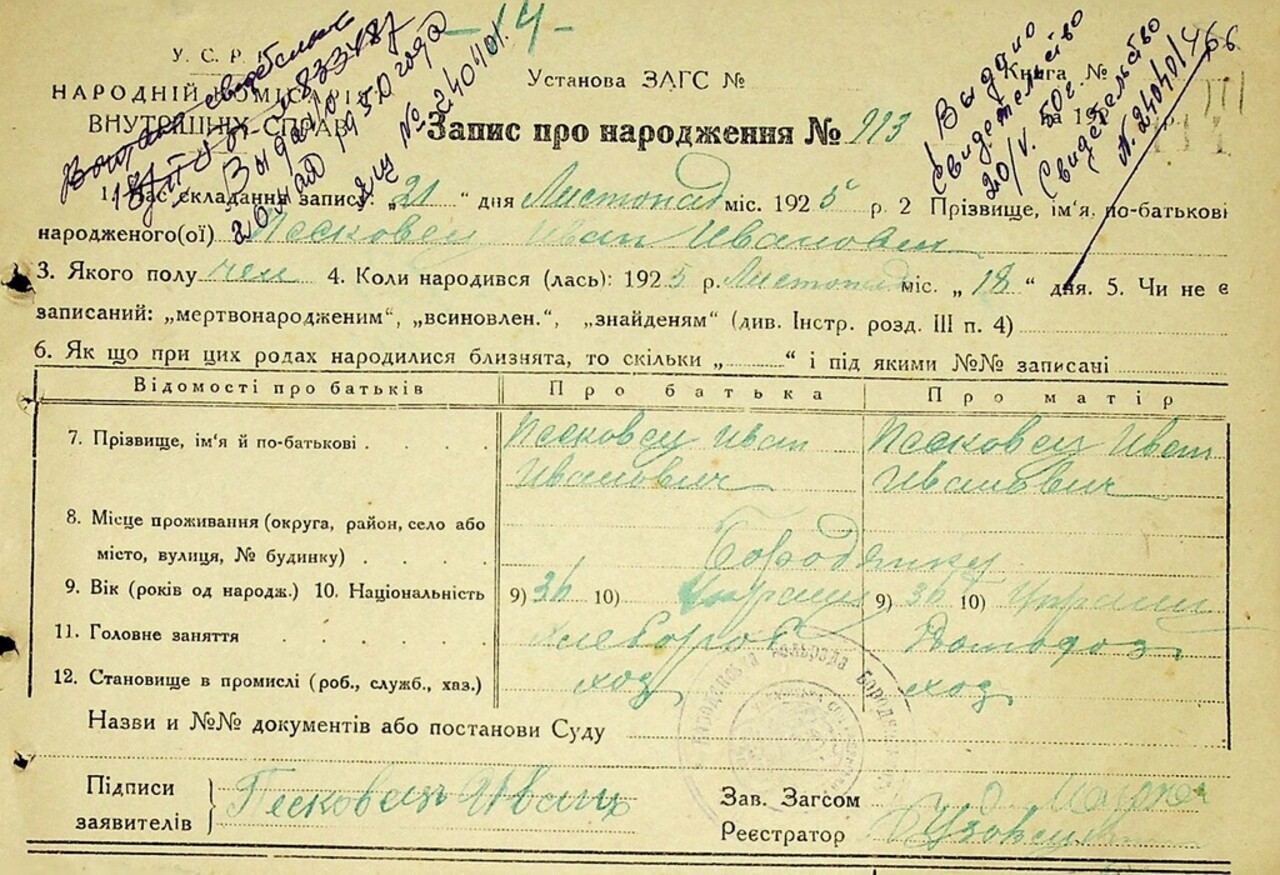 - 14 -
У. С. Р. Р.
НАРОДНІЙ КОМІСАРІЯТ
ВНУТРІШНІХ СПРАВ
Установа ЗАГС №
Книга №
за 192 р.
Выдано
свидетельство
20/V. 50 г.
Свидетельство
N. 2404014
66
Выдано
1950 года
Запис про народження № 913
1. Час складання запису: „ 21 “ дня Листопад міс. 192 5 р. 2 Прізвище, ім'я, по-батькові
народженого(ої) Песковец Иван Иванович
3. Якого полу чел 4. Коли народився (лась): 192 5 р. Листопад міс. „ 18 “ дня. 5. Чи не є
записаний: „мертвонародженим“, „всиновлен.“, „знайденям“ (див. Інстр. розд. III п. 4)
6. Як що при цих родах народилися близнята, то скільки „ “ і під якими №№ записані
Відомості про батьків Про батька Про матір
7. Прізвище, ім'я й по-батькові Песковец Иван Песковец Иван
Иванович Иванович
8. Місце проживання (округа, район, село або
місто, вулиця, № будинку)
9. Вік (років од народж.) 10. Національність 9) 36 10) Украин 9) 36 10) Украин
11. Головне заняття Хлебороб Домохоз
12. Становище в промислі (роб., служб., хаз.) хоз хоз
Назви и №№ документів або постанови Суду
Підписи
заявителів Песковец Иван
Зав. Загсом
Реєстратор